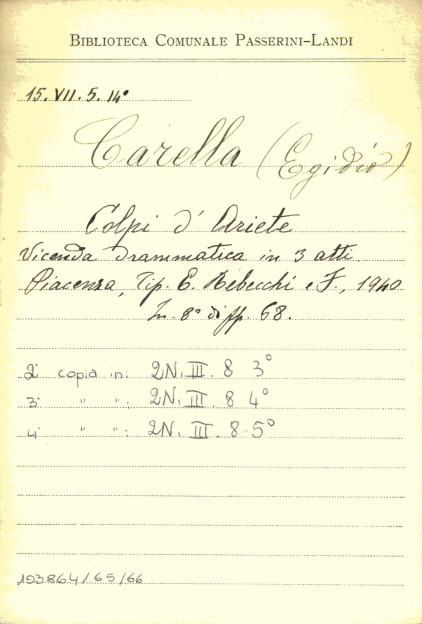 BIBLIOTECA COMUNALE PASSERINI-LANDI
15. VII. 5. 14°
Carella (Egidio)
Colpi d' Ariete
Vicenda drammatica in 3 atti.
Piacenza, Tip. E. Rebecchi e F., 1940
In 8° di pp. 68.
2ª copia in: 2N. III. 8 3°
3ª " ": 2N. III. 8 4°
4ª " ": 2N. III. 8-5°
193864/65/66